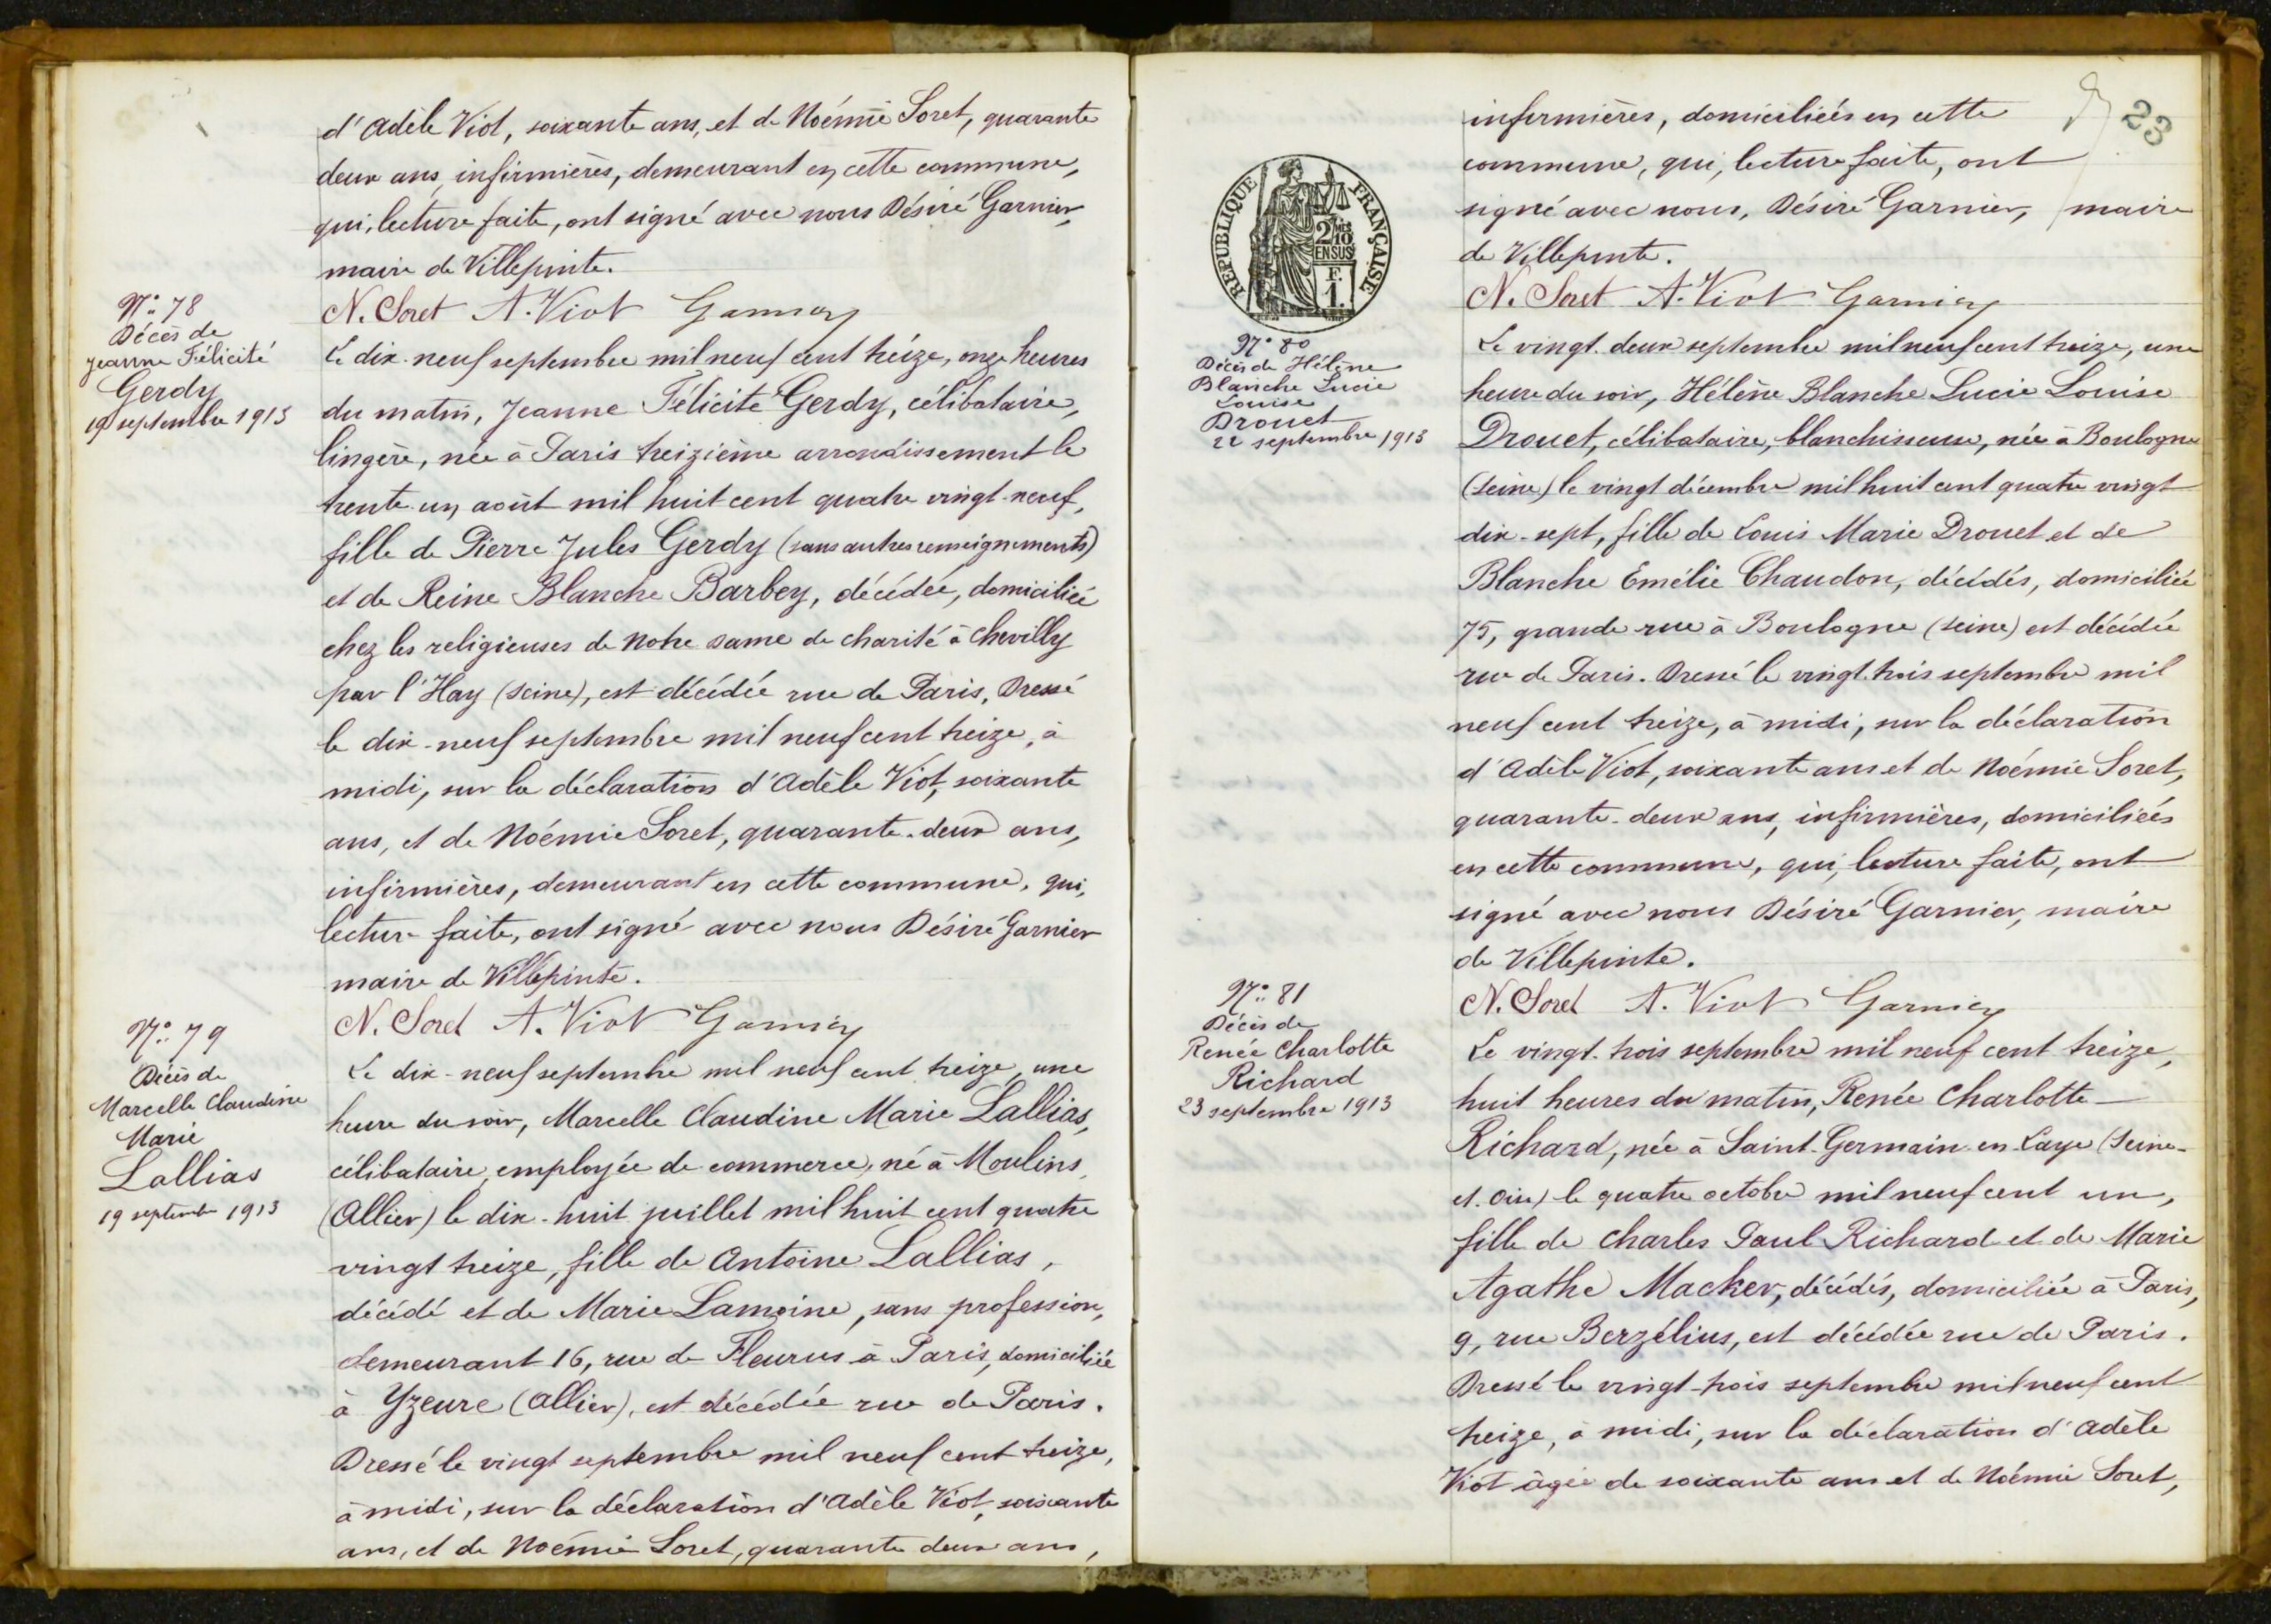 d'Adèle Viot, soixante ans, et de Noémie Soret, quarante
deux ans, infirmières, demeurant en cette commune,
qui, lecture faite, ont signé avec nous Désiré Garnier,
maire de Villepinte.
N. Soret A. Viot Garnier
N° 78
Décès de
Jeanne Félicité
Gerdy
19 septembre 1913
Le dix-neuf septembre mil neuf cent treize, onze heures
du matin, Jeanne Félicité Gerdy, célibataire,
lingère, née à Paris treizième arrondissement le
trente un août mil huit cent quatre vingt-neuf,
fille de Pierre Jules Gerdy (sans autres renseignements)
et de Reine Blanche Barbey, décédée, domiciliée
chez les religieuses de Notre Dame de charité à Chevilly
par l'Hay (Seine), est décédée rue de Paris. Dressé
le dix-neuf septembre mil neuf cent treize, à
midi, sur la déclaration d'Adèle Viot, soixante
ans, et de Noémie Soret, quarante-deux ans,
infirmières, demeurant en cette commune, qui,
lecture faite, ont signé avec nous Désiré Garnier
maire de Villepinte.
N. Soret A. Viot Garnier
N° 79
Décès de
Marcelle Claudine
Marie
Lallias
19 septembre 1913
Le dix-neuf septembre mil neuf cent treize, une
heure du soir, Marcelle Claudine Marie Lallias,
célibataire, employée de commerce, né à Moulins,
(Allier) le dix-huit juillet mil huit cent quatre
vingt treize, fille de Antoine Lallias,
décédé et de Marie Lamoine, sans profession,
demeurant 16, rue de Fleurus à Paris, domiciliée
à Yzeure (Allier), est décédée rue de Paris.
Dressé le vingt septembre mil neuf cent treize,
à midi, sur la déclaration d'Adèle Viot, soixante
ans, et de Noémie Soret, quarante deux ans,
23
infirmières, domiciliées en cette
commune, qui, lecture faite, ont
signé avec nous, Désiré Garnier, maire
de Villepinte.
N. Soret A. Viot Garnier
REPUBLIQUE FRANÇAISE
2 MES
10
EN SUS
F.
1.
N° 80
Décès de Hélène
Blanche Lucie
Louise
Drouet
22 septembre 1913
Le vingt-deux septembre mil neuf cent treize, une
heure du soir, Hélène Blanche Lucie Louise
Drouet, célibataire, blanchisseuse, née à Boulogne
(Seine) le vingt décembre mil huit cent quatre vingt
dix-sept, fille de Louis Marie Drouet et de
Blanche Emélie Chaudon, décédés, domiciliée
75, grande rue à Boulogne (Seine) est décédée
rue de Paris. Dressé le vingt-trois septembre mil
neuf cent treize, à midi, sur la déclaration
d'Adèle Viot, soixante ans et de Noémie Soret,
quarante-deux ans, infirmières, domiciliées
en cette commune, qui, lecture faite, ont
signé avec nous Désiré Garnier, maire
de Villepinte.
N. Soret A. Viot Garnier
N° 81
Décès de
Renée Charlotte
Richard
23 septembre 1913
Le vingt-trois septembre mil neuf cent treize,
huit heures du matin, Renée Charlotte
Richard, née à Saint-Germain-en-Laye (Seine-
et-Oise) le quatre octobre mil neuf cent un,
fille de Charles Paul Richard et de Marie
Agathe Macker, décédés, domiciliée à Paris,
9, rue Berzélius, est décédée rue de Paris.
Dressé le vingt-trois septembre mil neuf cent
treize, à midi, sur la déclaration d'Adèle
Viot âgée de soixante ans et de Noémie Soret,